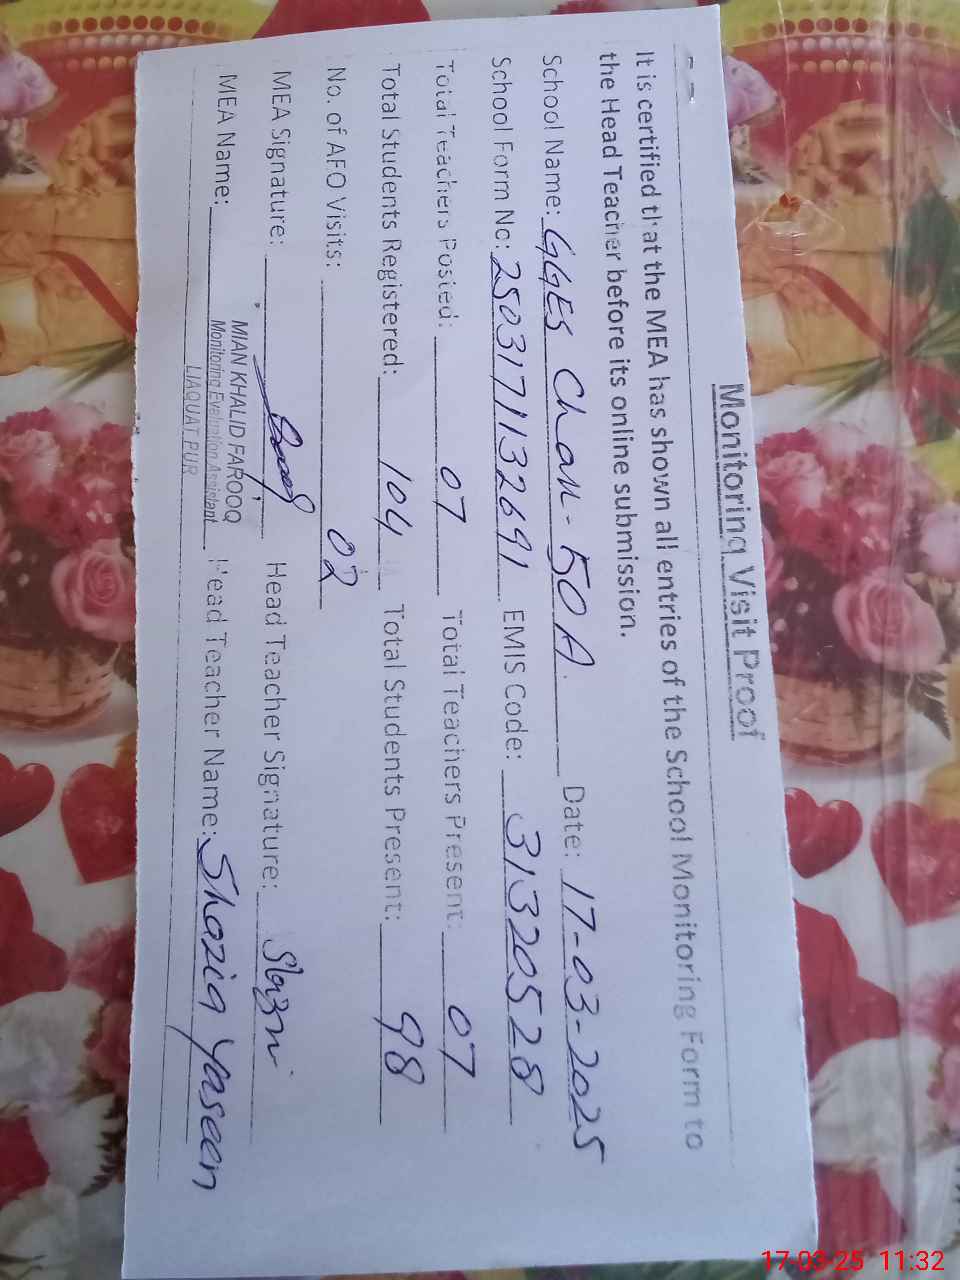 Monitoring Visit Proof
It is certified that the MEA has shown all entries of the School Monitoring Form to
the Head Teacher before its online submission.
School Name: GGES Chak-50 A Date: 17-03-2025
School Form No: 2503171132691 EMIS Code: 31320528
Total Teachers Posted: 07 Total Teachers Present: 07
Total Students Registered: 104 Total Students Present: 98
No. of AFO Visits: 02
MEA Signature: Head Teacher Signature:
MEA Name: MIAN KHALID FAROOQ Head Teacher Name: Shazia Yaseen
Monitoring Evaluation Assistant
LIAQUAT PUR
17-03-25 11:32